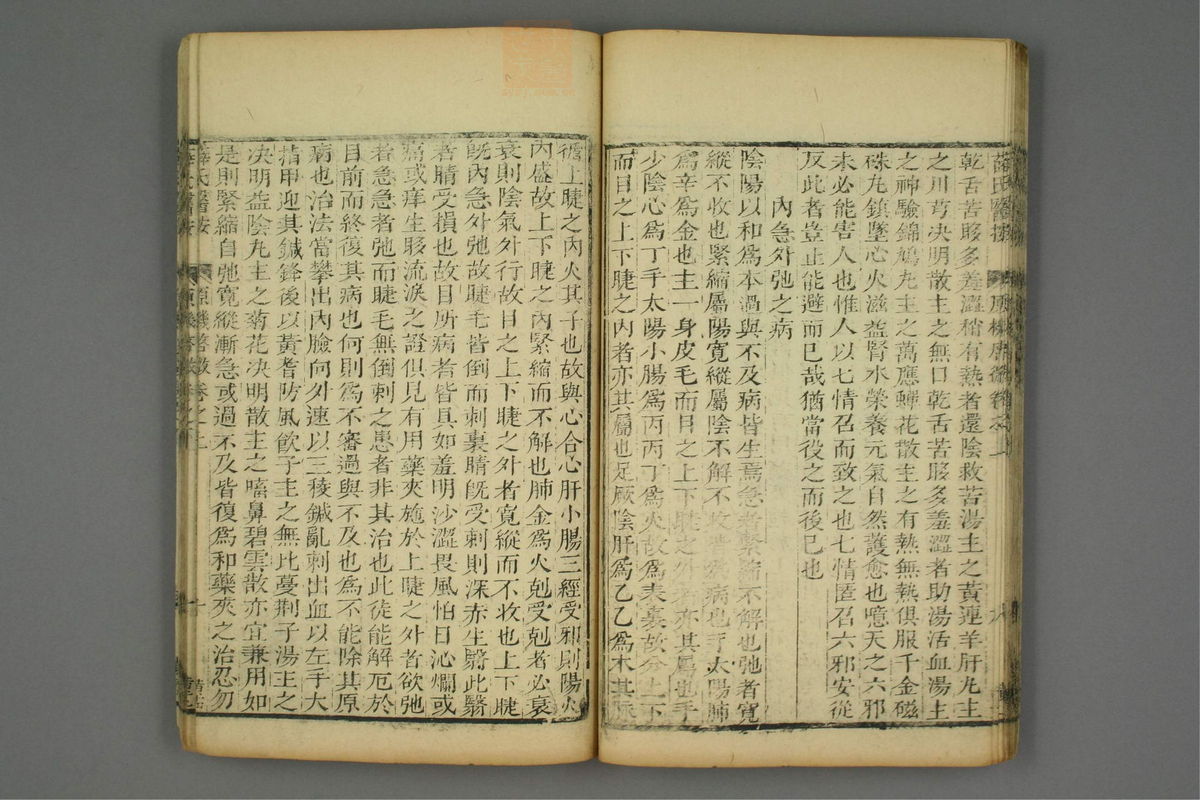 薛氏醫按 原機啓微卷之上
乾舌苦眵多羞澀稍有熱者還陰救苦湯主之黃連羊肝丸主
之川芎決明散主之無口乾舌苦眵多羞澀者助湯活血湯主
之神驗錦鳩丸主之萬應蟬花散主之有熱無熱俱服千金磁
硃丸鎮墜心火滋益腎水榮養元氣自然護愈也噫天之六邪
未必能害人也惟人以七情召而致之也七情匿召六邪安從
反此者豈止能避而已哉猶當役之而後已也
內急外弛之病
陰陽以和爲本過與不及病皆生焉急者緊縮不解也弛者寬
縱不收也緊縮屬陽寬縱屬陰不解不收皆爲病也手太陽肺
爲辛爲金也主一身皮毛而目之上下睫之外者亦其屬也手
少陰心爲丁手太陽小腸爲丙丙丁爲火故爲表裏故分上下
而目之上下睫之內者亦其屬也足厥陰肝爲乙乙爲木其脉
循上睫之內火其子也故與心合心肝小腸三經受邪則陽火
內盛故上下睫之內緊縮而不解也肺金爲火剋受剋者必衰
衰則陰氣外行故目之上下睫之外者寬縱而不收也上下睫
旣內急外弛故睫毛皆倒而刺裏睛旣受刺則深赤生翳此翳
者睛受損也故目所病者皆具如羞明沙澀畏風怕日沁爛或
痛或痒生眵流淚之證俱見有用藥夾施於上睫之外者欲弛
者急急者弛而睫毛無倒刺之患者非其治也此徒能解厄於
目前而終復其病也何則爲不審過與不及也爲不能除其原
病也治法當攀出內瞼向外速以三稜鍼亂刺出血以左手大
指甲迎其鍼鋒後以黃耆防風飲子主之無比蔓荆子湯主之
決明益陰丸主之菊花決明散主之㗜鼻碧雲散亦宜兼用如
是則緊縮自弛寬縱漸急或過不及皆復爲和藥夾之治忍勿
薛氏醫按 原機啓微卷之上 十